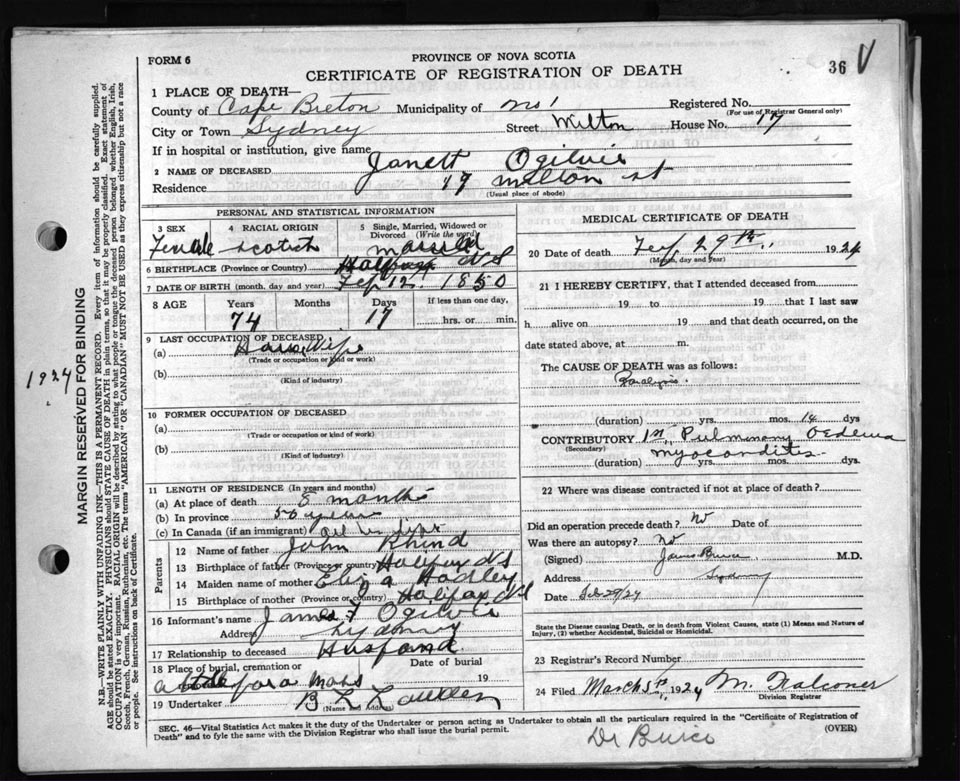 FORM 6
PROVINCE OF NOVA SCOTIA
CERTIFICATE OF REGISTRATION OF DEATH
36 V
1 PLACE OF DEATH—
County of Cape Breton Municipality of No 1 Registered No.
(For use of Registrar General only)
City or Town Sydney Street Milton House No. 17
If in hospital or institution, give name
2 NAME OF DECEASED Janett Ogilvie
Residence 19 Milton st
(Usual place of abode)
PERSONAL AND STATISTICAL INFORMATION
3 SEX 4 RACIAL ORIGIN 5 Single, Married, Widowed or Divorced (Write the word)
Female Scotch Married
6 BIRTHPLACE (Province or Country) Halifax N S
7 DATE OF BIRTH (month, day and year) Feb 12. 1850
8 AGE Years Months Days If less than one day,
74 17 hrs. or min.
9 LAST OCCUPATION OF DECEASED
(a) House Wife
(Trade or occupation or kind of work)
(b)
(Kind of industry)
10 FORMER OCCUPATION OF DECEASED
(a)
(Trade or occupation or kind of work)
(b)
(Kind of industry)
11 LENGTH OF RESIDENCE (In years and months)
(a) At place of death 8 months
(b) In province 50 years
(c) In Canada (if an immigrant) all
Parents
12 Name of father John Rhind
13 Birthplace of father (Province or country) Halifax N S
14 Maiden name of mother Eliza Hadley
15 Birthplace of mother (Province or country) Halifax N S
16 Informant's name James F Ogilvie
Address Sydney
17 Relationship to deceased Husband
18 Place of burial, cremation or Date of burial
19
19 Undertaker B L
(Name and address)
MEDICAL CERTIFICATE OF DEATH
20 Date of death Feb 29th, 1924
(Month, day and year)
21 I HEREBY CERTIFY, that I attended deceased from
19 to 19 that I last saw
h alive on 19 and that death occurred, on the
date stated above, at m.
The CAUSE OF DEATH was as follows:
Paralysis.
(duration) yrs. mos. 14 dys
CONTRIBUTORY 1st, Pulmonary Oedema
(Secondary) Myocarditis
(duration) yrs. mos. dys.
22 Where was disease contracted if not at place of death?
Did an operation precede death? No Date of
Was there an autopsy? No
(Signed) James Bruce M.D.
Address Sydney
Date Feb 29/24
State the Disease causing Death, or in death from Violent Causes, state (1) Means and Nature of
Injury, (2) whether Accidental, Suicidal or Homicidal.
23 Registrar's Record Number
24 Filed March 5th, 1924 M. Falconer
Division Registrar
SEC. 46—Vital Statistics Act makes it the duty of the Undertaker or person acting as Undertaker to obtain all the particulars required in the "Certificate of Registration of
Death" and to fyle the same with the Division Registrar who shall issue the burial permit.
(OVER)
Dr Bruce
1924
MARGIN RESERVED FOR BINDING
N.B.—WRITE PLAINLY WITH UNFADING INK—THIS IS A PERMANENT RECORD. Every item of information should be carefully supplied.
AGE should be stated EXACTLY. PHYSICIANS should STATE CAUSE OF DEATH in plain terms, so that it may be properly classified. Exact statement of
OCCUPATION is very important. RACIAL ORIGIN will be described by stating to what people or tongue the deceased person belonged whether English, Irish,
Scotch, French, German, Russian, Ruthenian, etc. The terms "AMERICAN" OR "CANADIAN" MUST NOT BE USED as they express citizenship but not a race
or people. See instructions on back of Certificate.